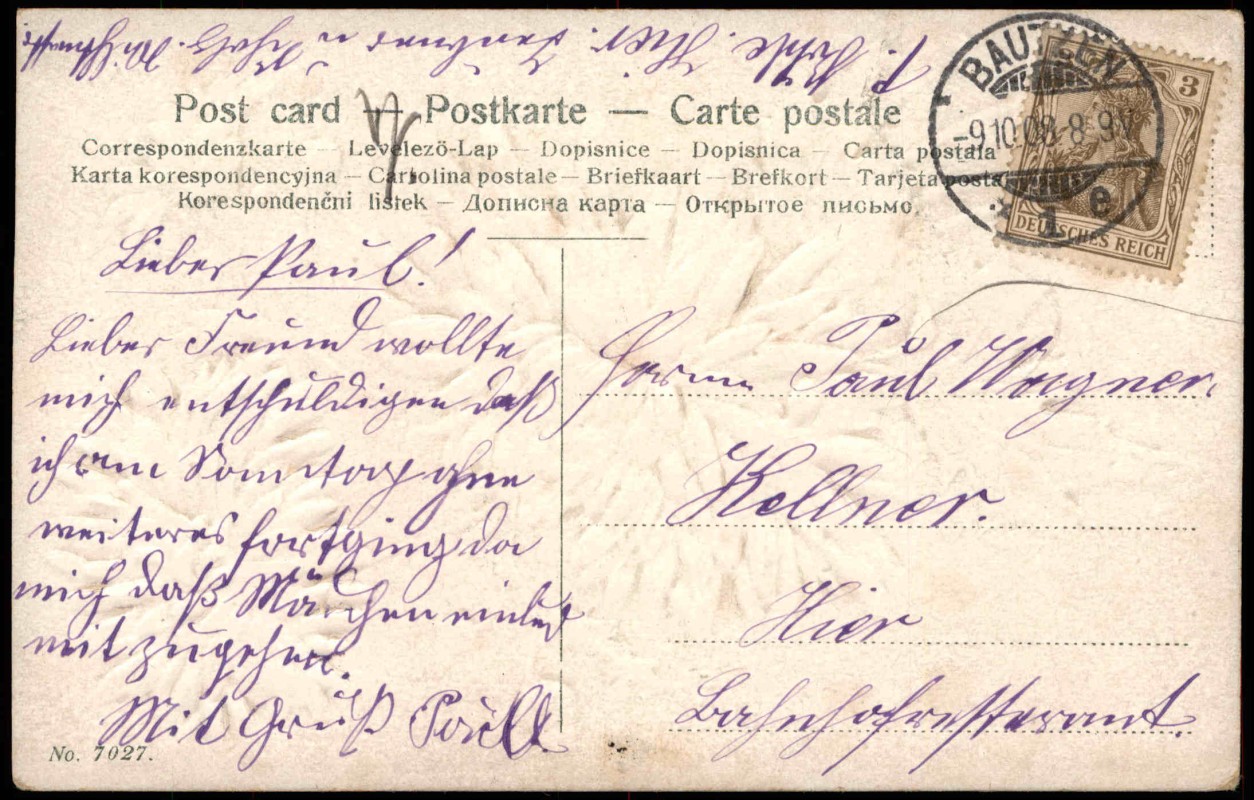 Post card — Postkarte — Carte postale
Correspondenzkarte — Levelezö-Lap — Dopisnice — Dopisnica — Carta postala
Karta korespondencyjna — Cartolina postale — Briefkaart — Brefkort — Tarjeta posta
Korespondenčni listek — Дописна карта — Открытое письмо.
BAUTZEN
-9.10.08.8-9V
1 e
3
DEUTSCHES REICH
Lieber Paul!
Lieber Freund wollte
mich entschuldigen daß
ich am Sonntag ohne
weiteres fortging da
mich daß Mädchen einlud
mit zugehen.
Mit Gruß Paul
No. 7027.
Herrn Paul Wagner.
Kellner.
Hier
Bahnhofresterant.